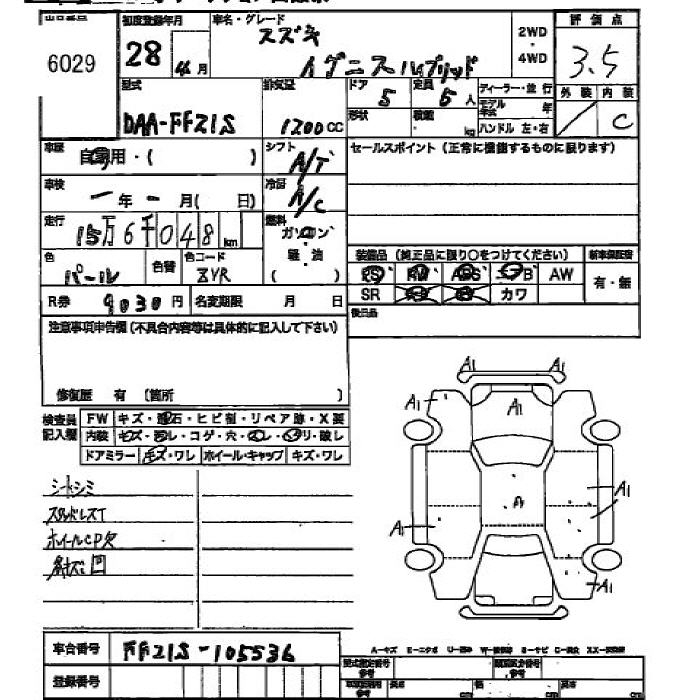 6029
初度登録年月
28 年 月
車名・グレード
スズキ
イグニスハイブリッド
2WD
・
4WD
評価点
3.5
外装 内装
C
型式
DAA-FF21S
排気量
1200 CC
ドア
5
定員
5 人
形状
積載
kg
ディーラー・並行
モデル年式 年
ハンドル 左・右
車歴
自家用・( )
シフト
A/T
セールスポイント (正常に機能するものに限ります)
車検
ー年ー月( 日)
冷房
A/C
走行
15万6千048 km
燃料
ガソリン
軽油
( )
色
パール
色替
色コード
ZVR
装備品 (純正品に限り○をつけてください)
新車保証書
PS PW ABS エアB AW
有・無
SR カワ
R券 9030 円
名変期限 月 日
後日品
注意事項申告欄 (不具合内容等は具体的に記入して下さい)
修復歴 有 〔箇所 〕
検査員記入欄
FW キズ・飛石・ヒビ割・リペア跡・X要
内装 キズ・汚レ・コゲ・穴・
ドアミラー キズ・ワレ ホイール・キャップ キズ・ワレ
シートシミ
スタッドレスT
ホイールCP欠
A1
A1
A1
A1
A1
A
A1
A1
A1
A-キズ
車台番号 FF21S-105536
登録番号